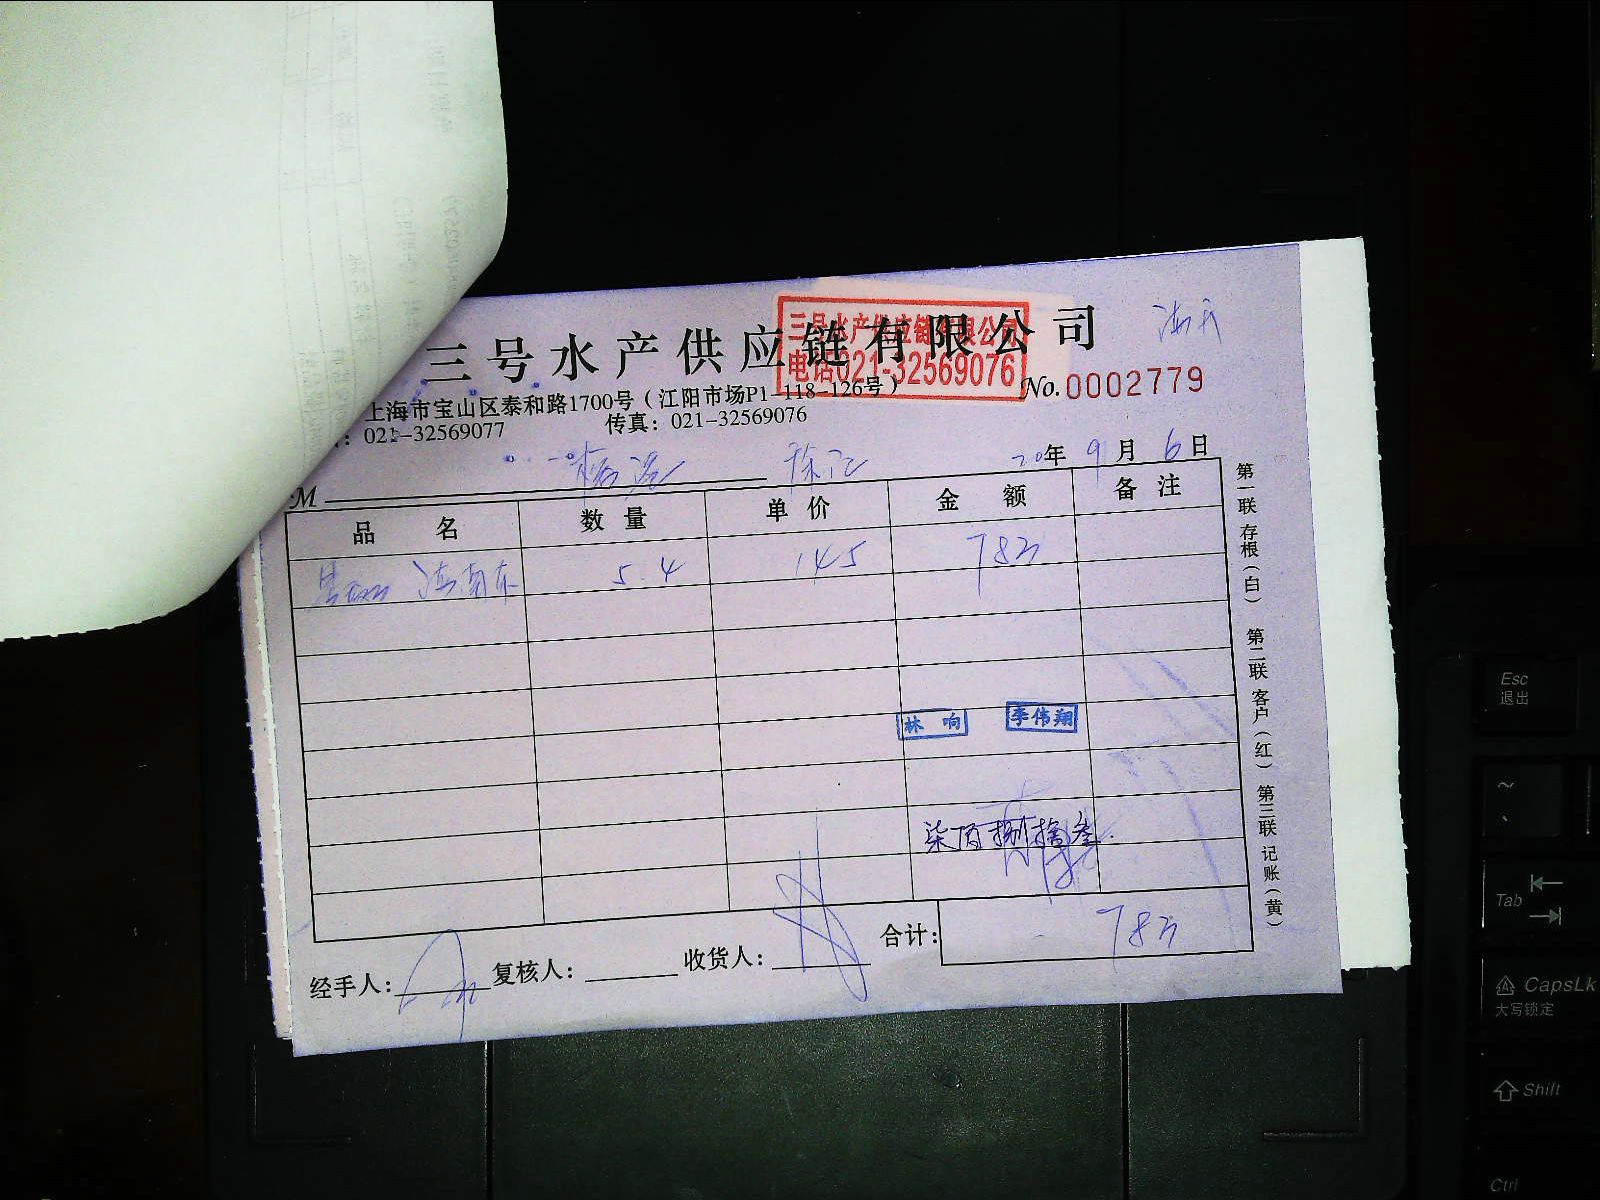 三号水产供应链有限公司
三号水产供应链有限公司
电话021-32569076
上海市宝山区泰和路1700号（江阳市场P1-118-126号）
No.0002779
：021-32569077 传真：021-32569076
20年9月6日
M 徐汇
品名 数量 单价 金额 备注
5.4 145 783
林响 李伟翔
柒佰捌拾叁
合计： 783
经手人： 复核人： 收货人：
第一联 存根（白） 第二联 客户（红） 第三联 记账（黄）
Esc
退出
~
Tab
CapsLk
大写锁定
Shift
Ctrl